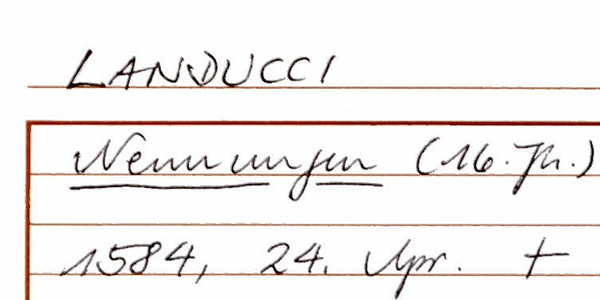 LANDUCCI
Nennungen (16. Jh.)
1584, 24. Apr. †